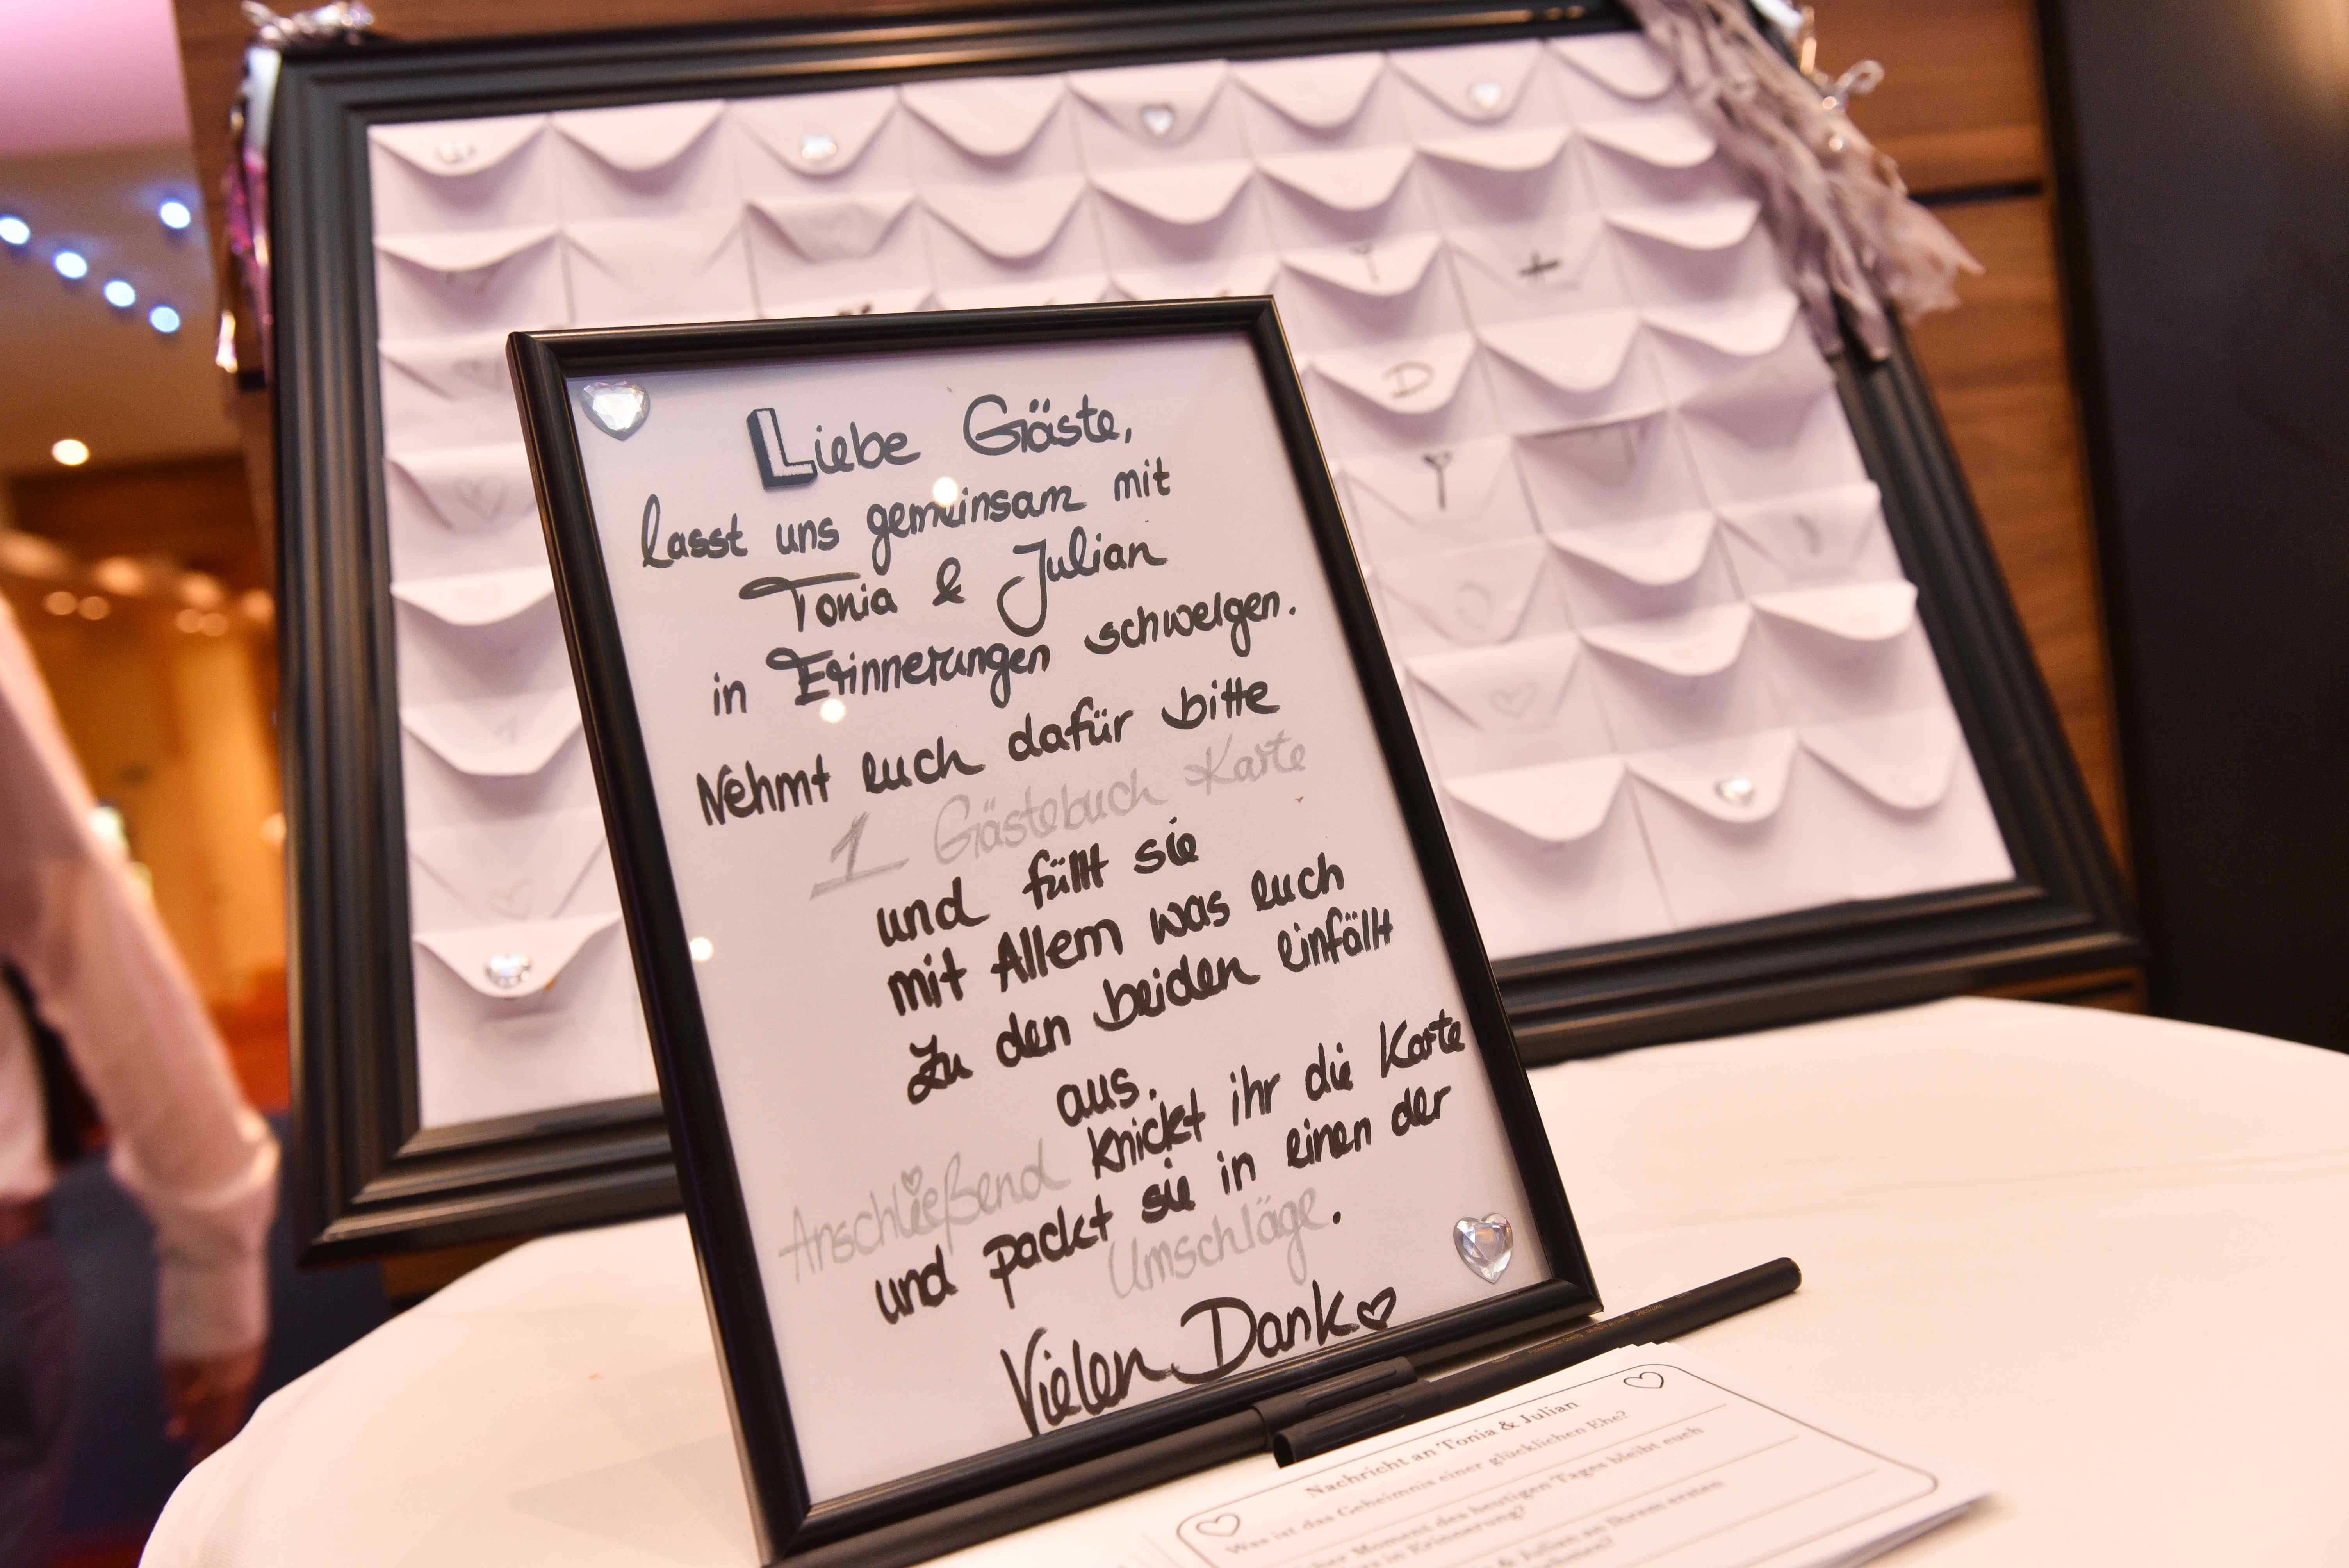 Liebe Gäste,
lasst uns gemeinsam mit
Tonia & Julian
in Erinnerungen schwelgen.
Nehmt euch dafür bitte
1 Gästebuch Karte
und füllt sie
mit Allem was euch
zu den beiden einfällt
aus.
Anschließend knickt ihr die Karte
und packt sie in einen der
Umschläge.
Vielen Dank
D
Nachricht an Tonia & Julian
Was ist das Geheimnis einer glücklichen Ehe?
Moment des heutigen Tages bleibt euch
in Erinnerung?
& Julian an Ihrem ersten